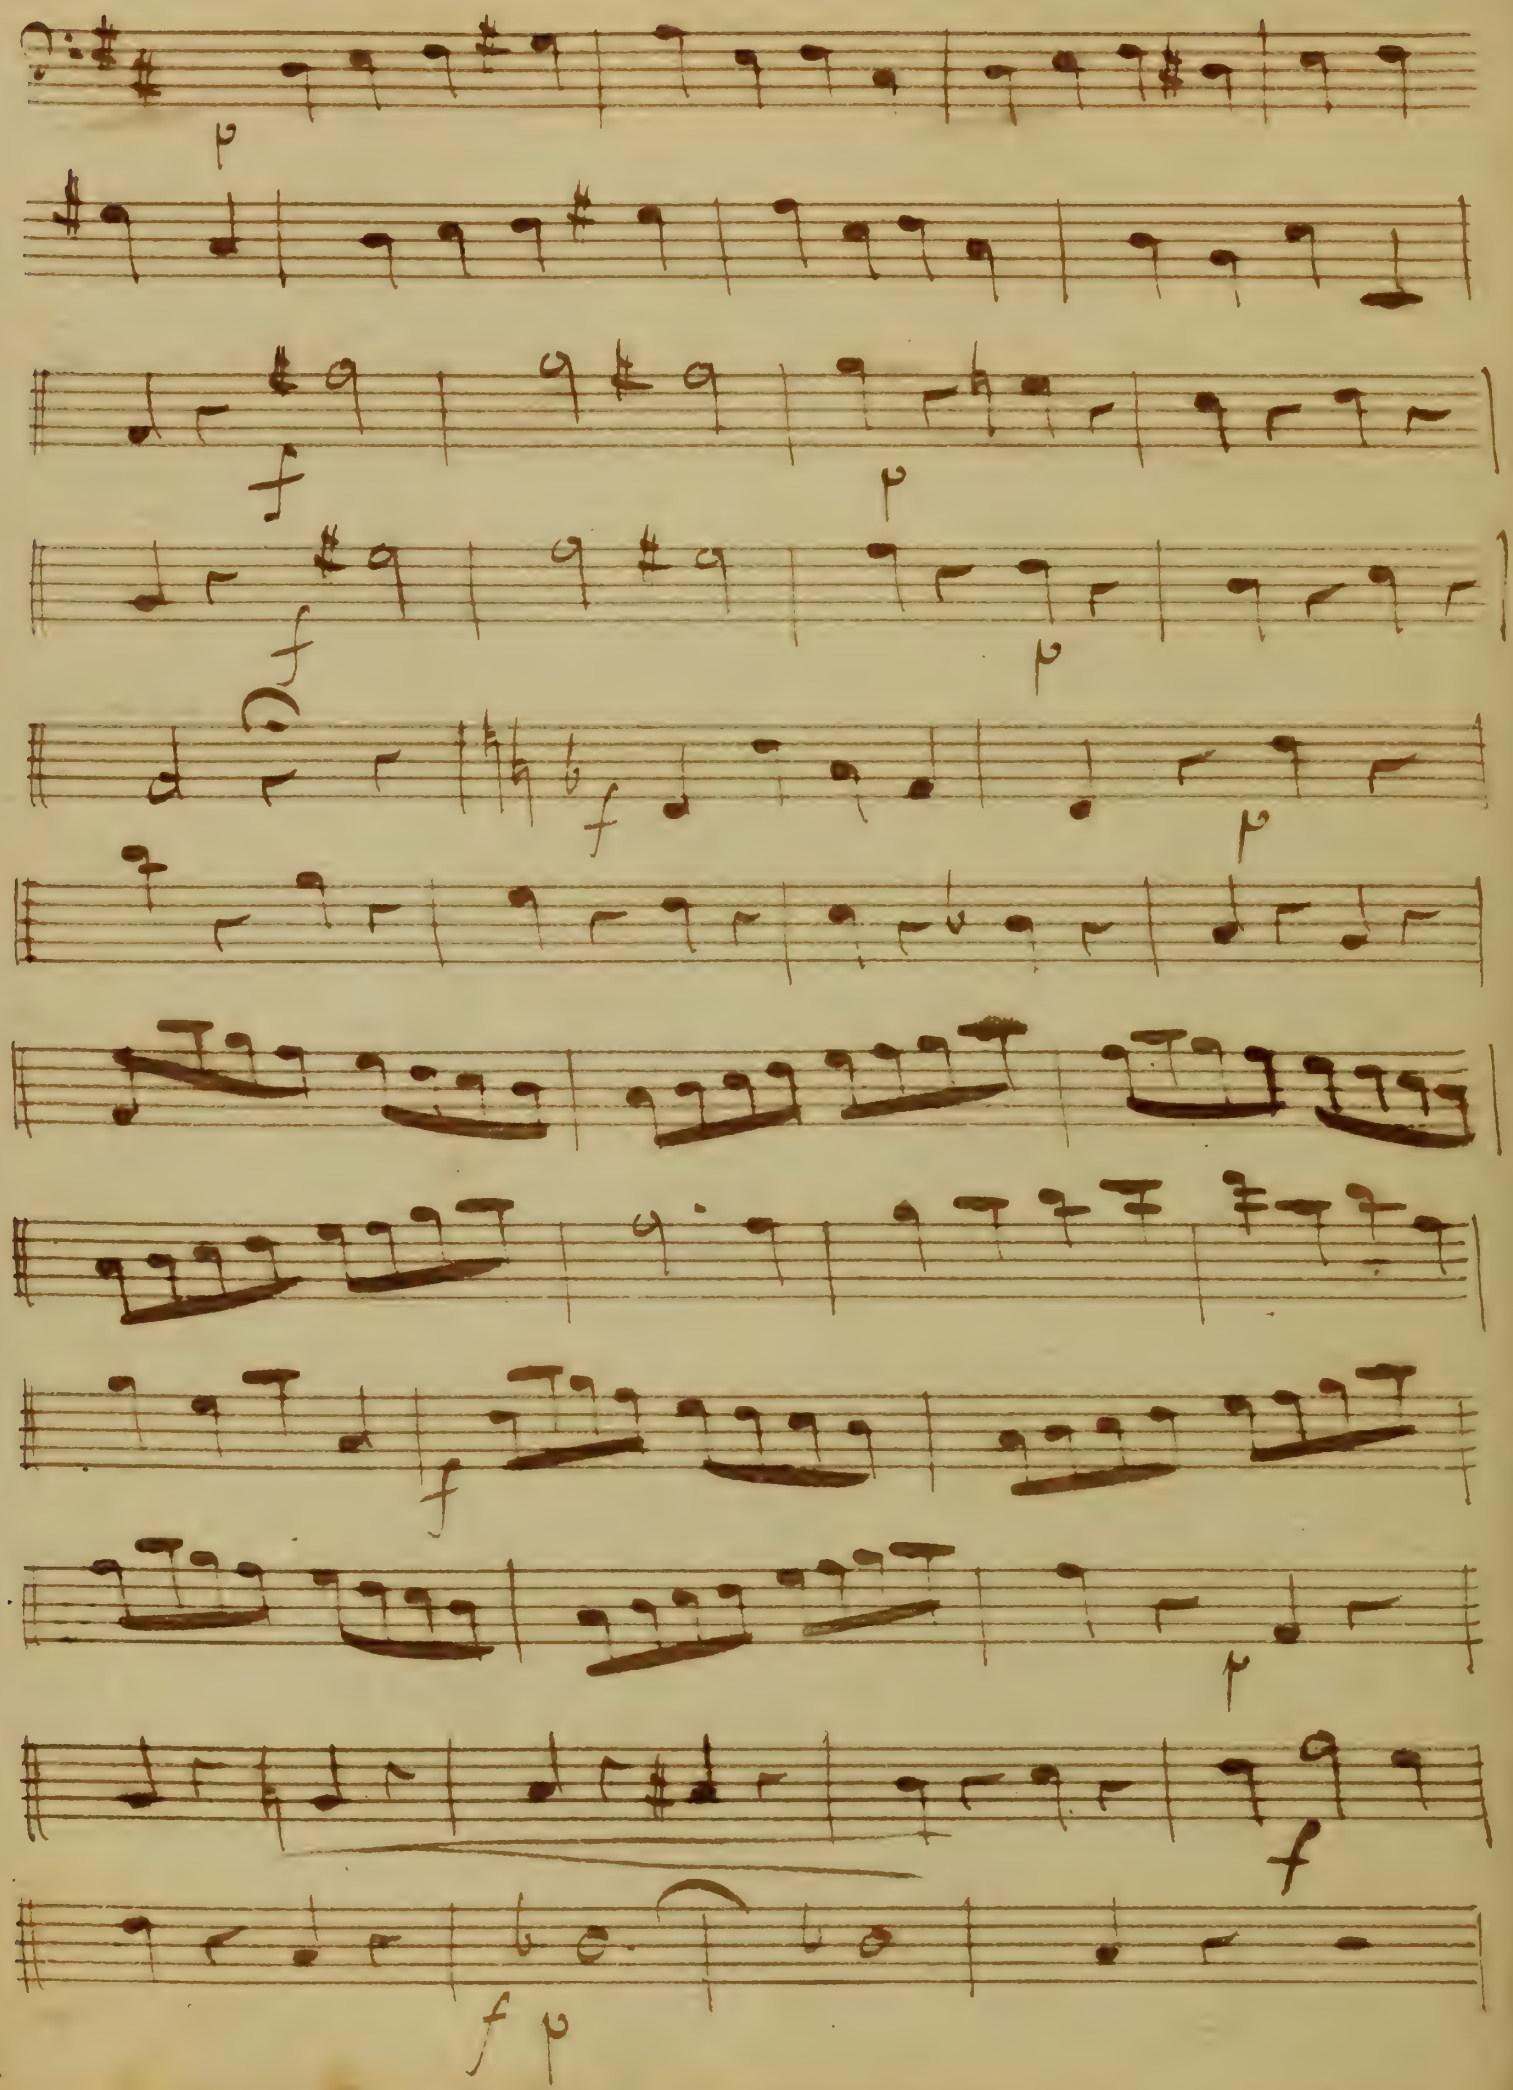 p
f
p
f
p
f
p
f
p
f
f p